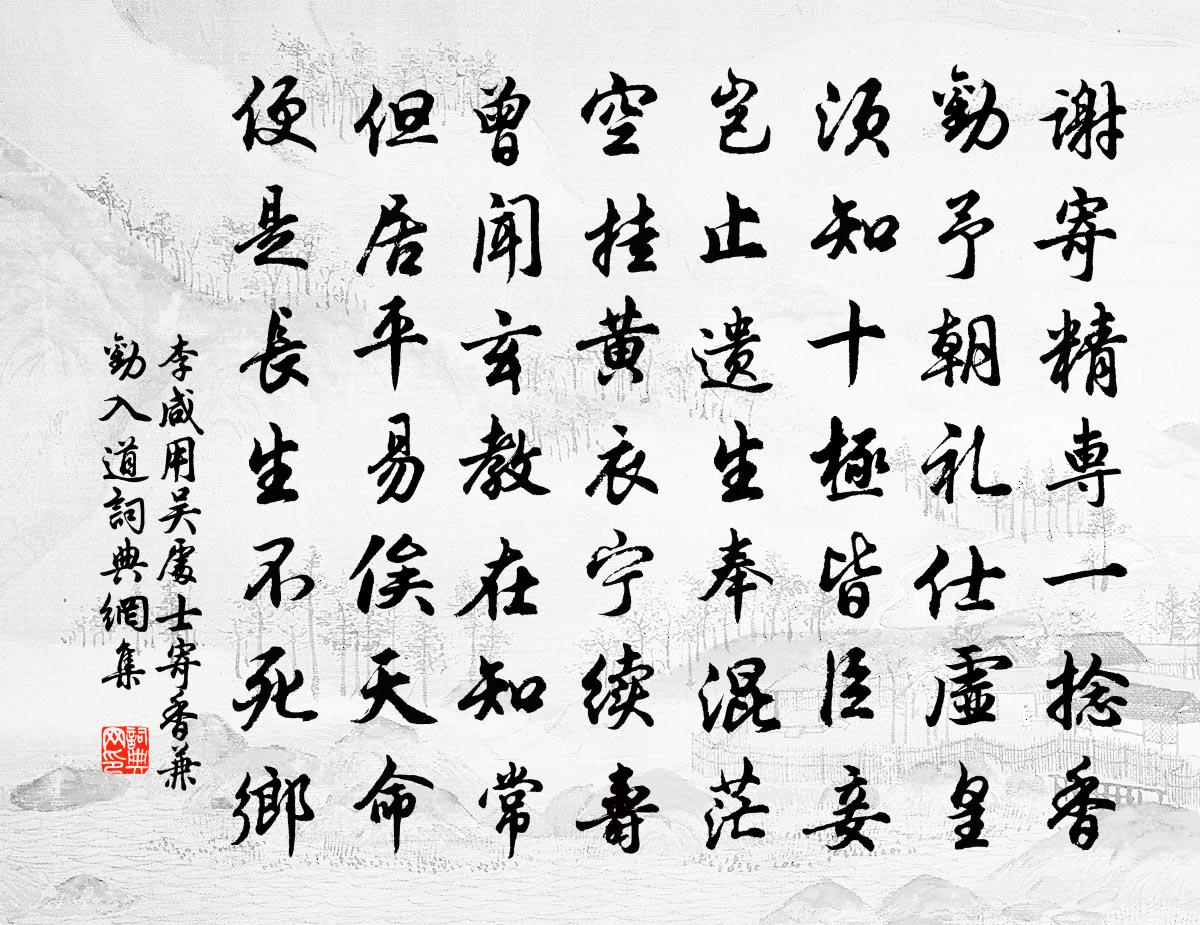 谢寄精専一捻香
勸予朝礼仕虛皇
须知十極皆臣妾
岂止遗生奉混茫
空挂黄衣宁续壽
曾闻玄教在知常
但居平易俟天命
便是長生不死鄉
李咸用吴處士寄香兼
勸入道詞典網集
詞典网印